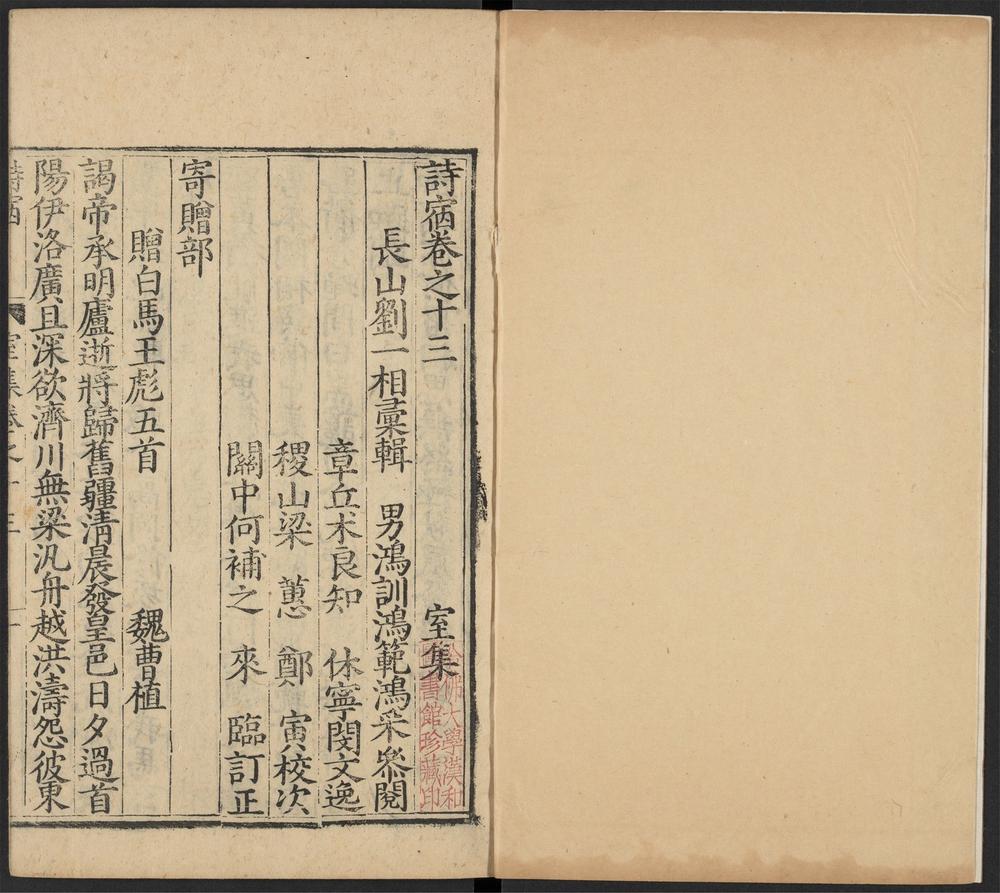 詩宿卷之十三 室集
哈佛大學漢和
圖書館珍藏印
長山劉一相彙輯 男鴻訓鴻範鴻采叅閱
章丘朮良知 休寧閔文逸
稷山梁 蕙 鄭 寅校次
關中何補之 來 臨訂正
寄贈部
贈白馬王彪五首 魏曹植
謁帝承明廬逝將歸舊疆清晨發皇邑日夕過首
陽伊洛廣且深欲濟川無梁汎舟越洪濤怨彼東
詩宿 室集卷之十三 一